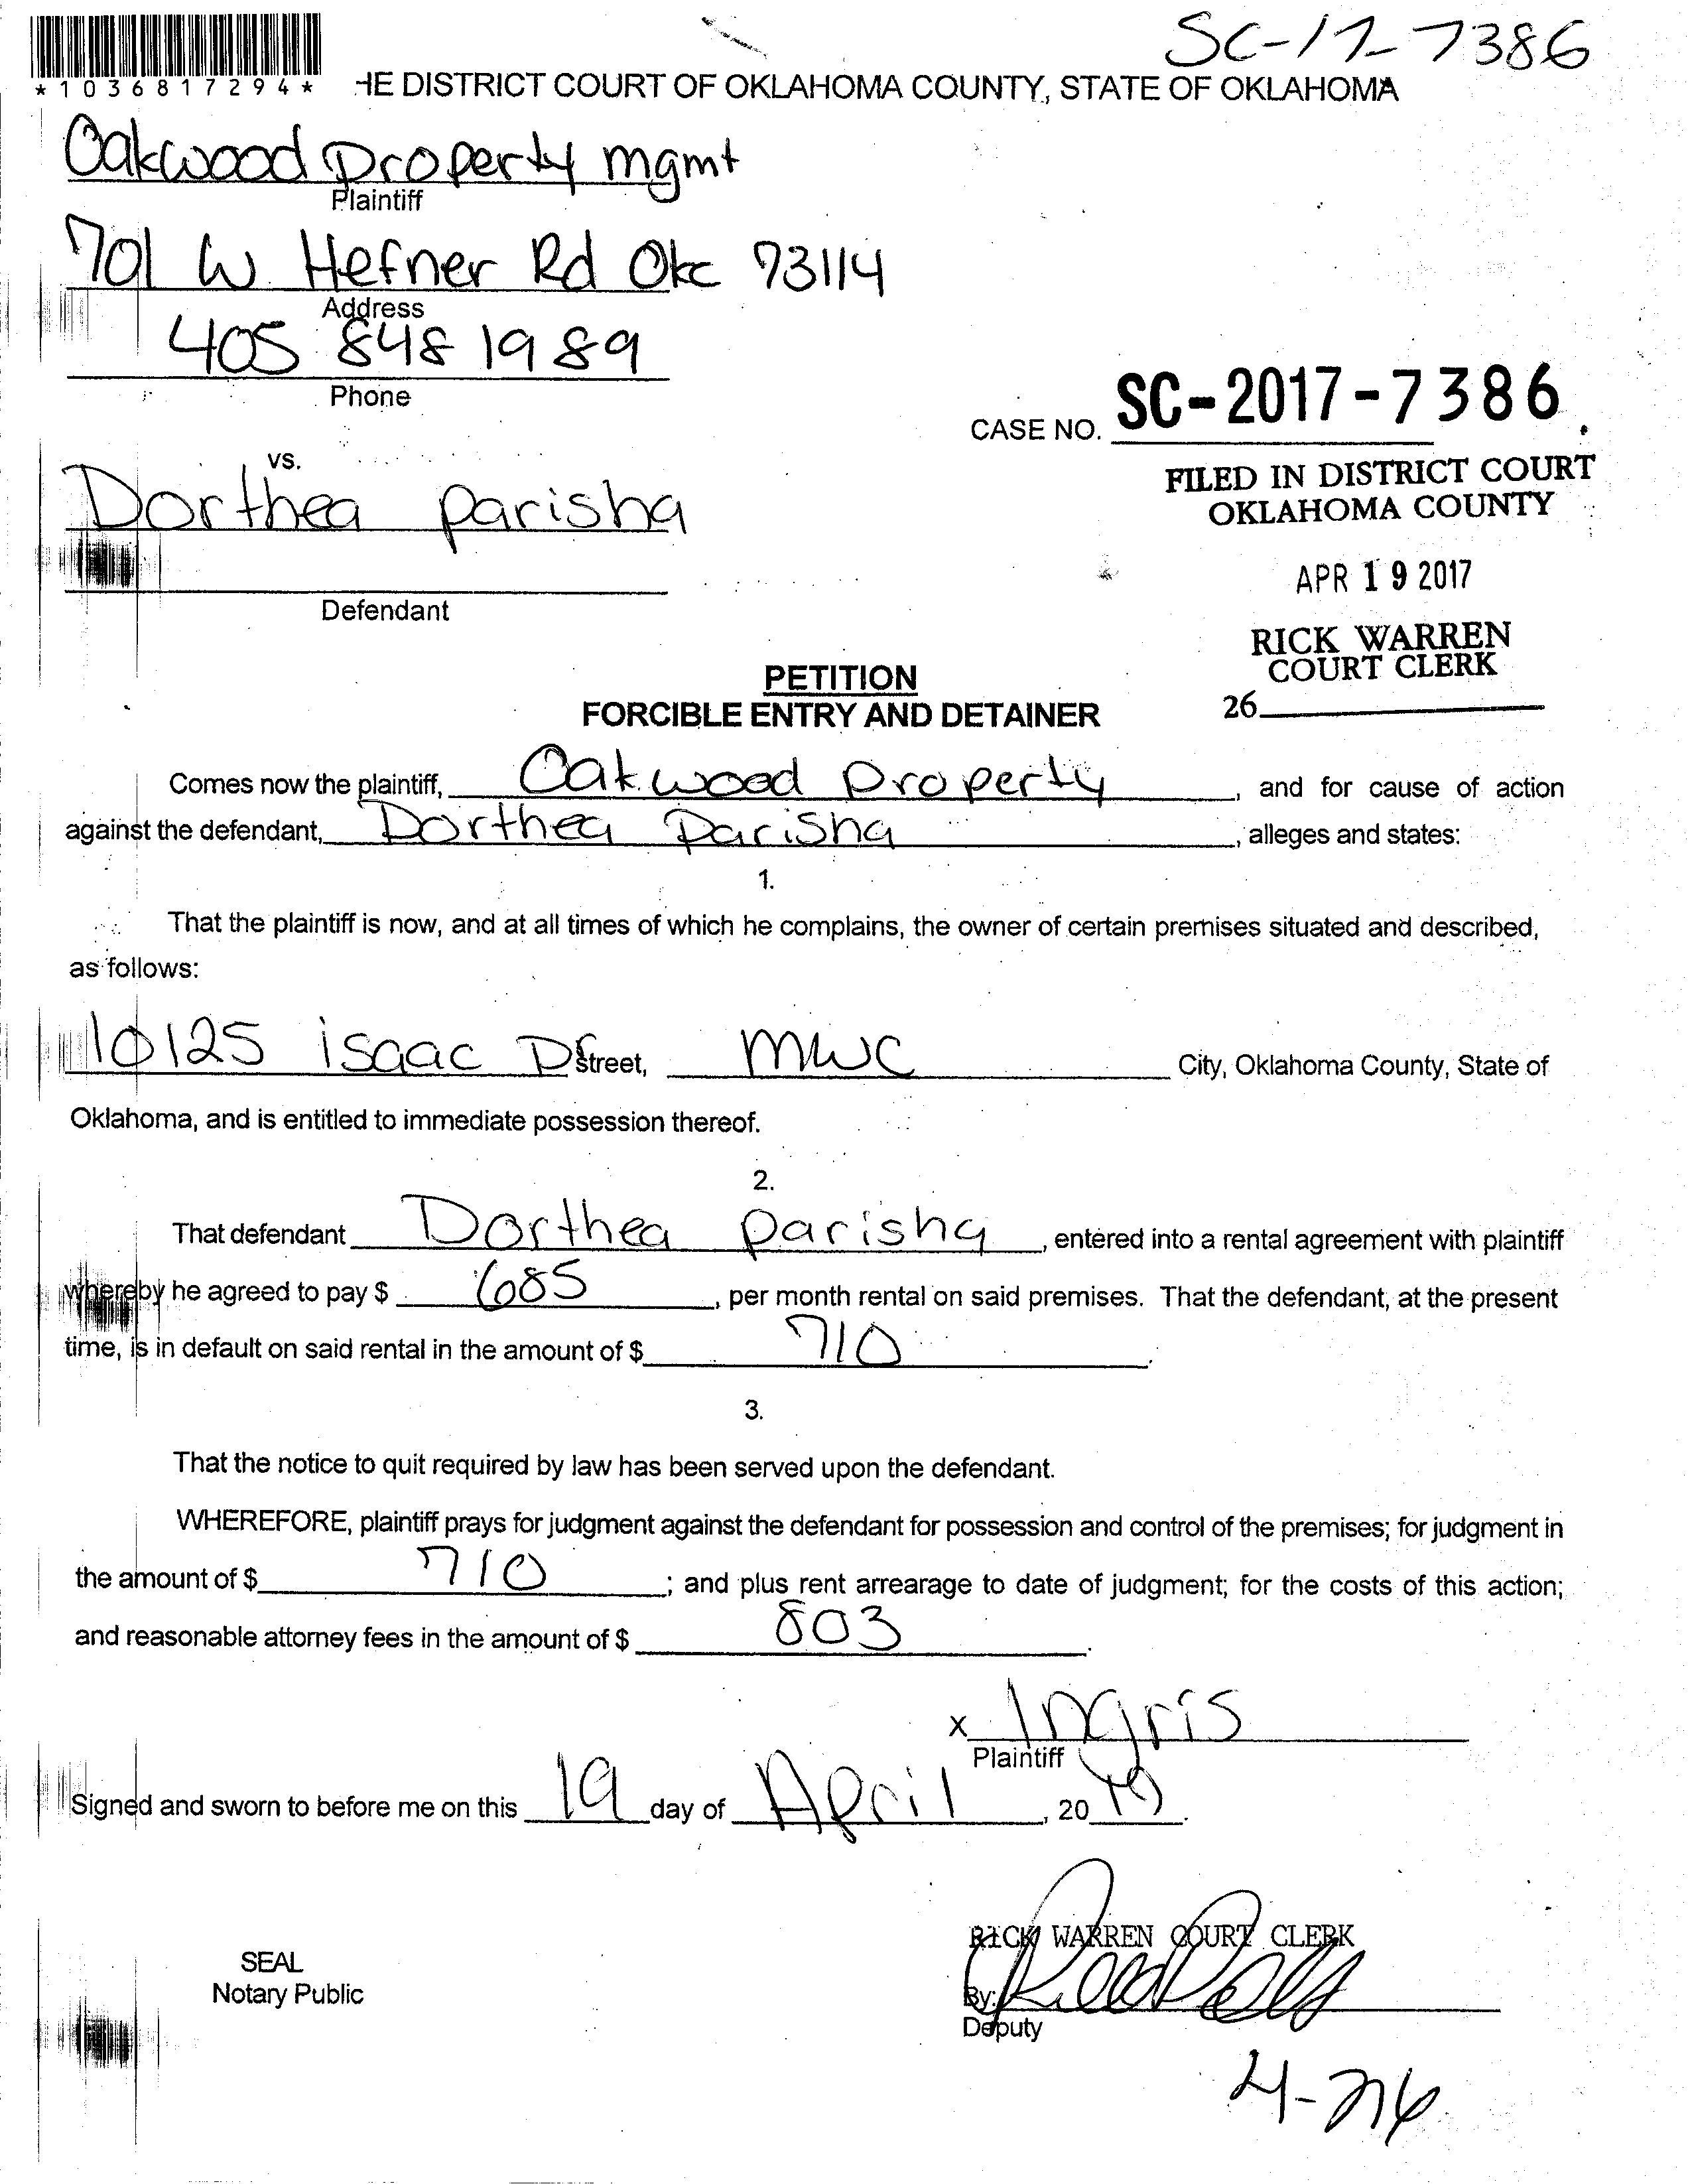 SC-17-7386
*1036817294*
HE DISTRICT COURT OF OKLAHOMA COUNTY, STATE OF OKLAHOMA
Oakwood Property mgmt
Plaintiff
701 W. Hefner Rd Okc 73114
Address
405 848 1989
Phone
CASE NO. SC-2017-7386.
vs.
FILED IN DISTRICT COURT
OKLAHOMA COUNTY
Dorthea parisha
APR 19 2017
Defendant
RICK WARREN
COURT CLERK
26
PETITION
FORCIBLE ENTRY AND DETAINER
Comes now the plaintiff, Oakwood Property, and for cause of action
against the defendant, Dorthea Parisha, alleges and states:
1.
That the plaintiff is now, and at all times of which he complains, the owner of certain premises situated and described,
as follows:
10125 isaac Dr Street, MWC City, Oklahoma County, State of
Oklahoma, and is entitled to immediate possession thereof.
2.
That defendant Dorthea parisha, entered into a rental agreement with plaintiff
whereby he agreed to pay $ 685, per month rental on said premises. That the defendant, at the present
time, is in default on said rental in the amount of $ 710.
3.
That the notice to quit required by law has been served upon the defendant.
WHEREFORE, plaintiff prays for judgment against the defendant for possession and control of the premises; for judgment in
the amount of $ 710; and plus rent arrearage to date of judgment; for the costs of this action;
and reasonable attorney fees in the amount of $ 803.
x Ingris
Plaintiff
Signed and sworn to before me on this 19 day of April, 20 17.
RICK WARREN COURT CLERK
SEAL
Notary Public
By:
Deputy
4-26